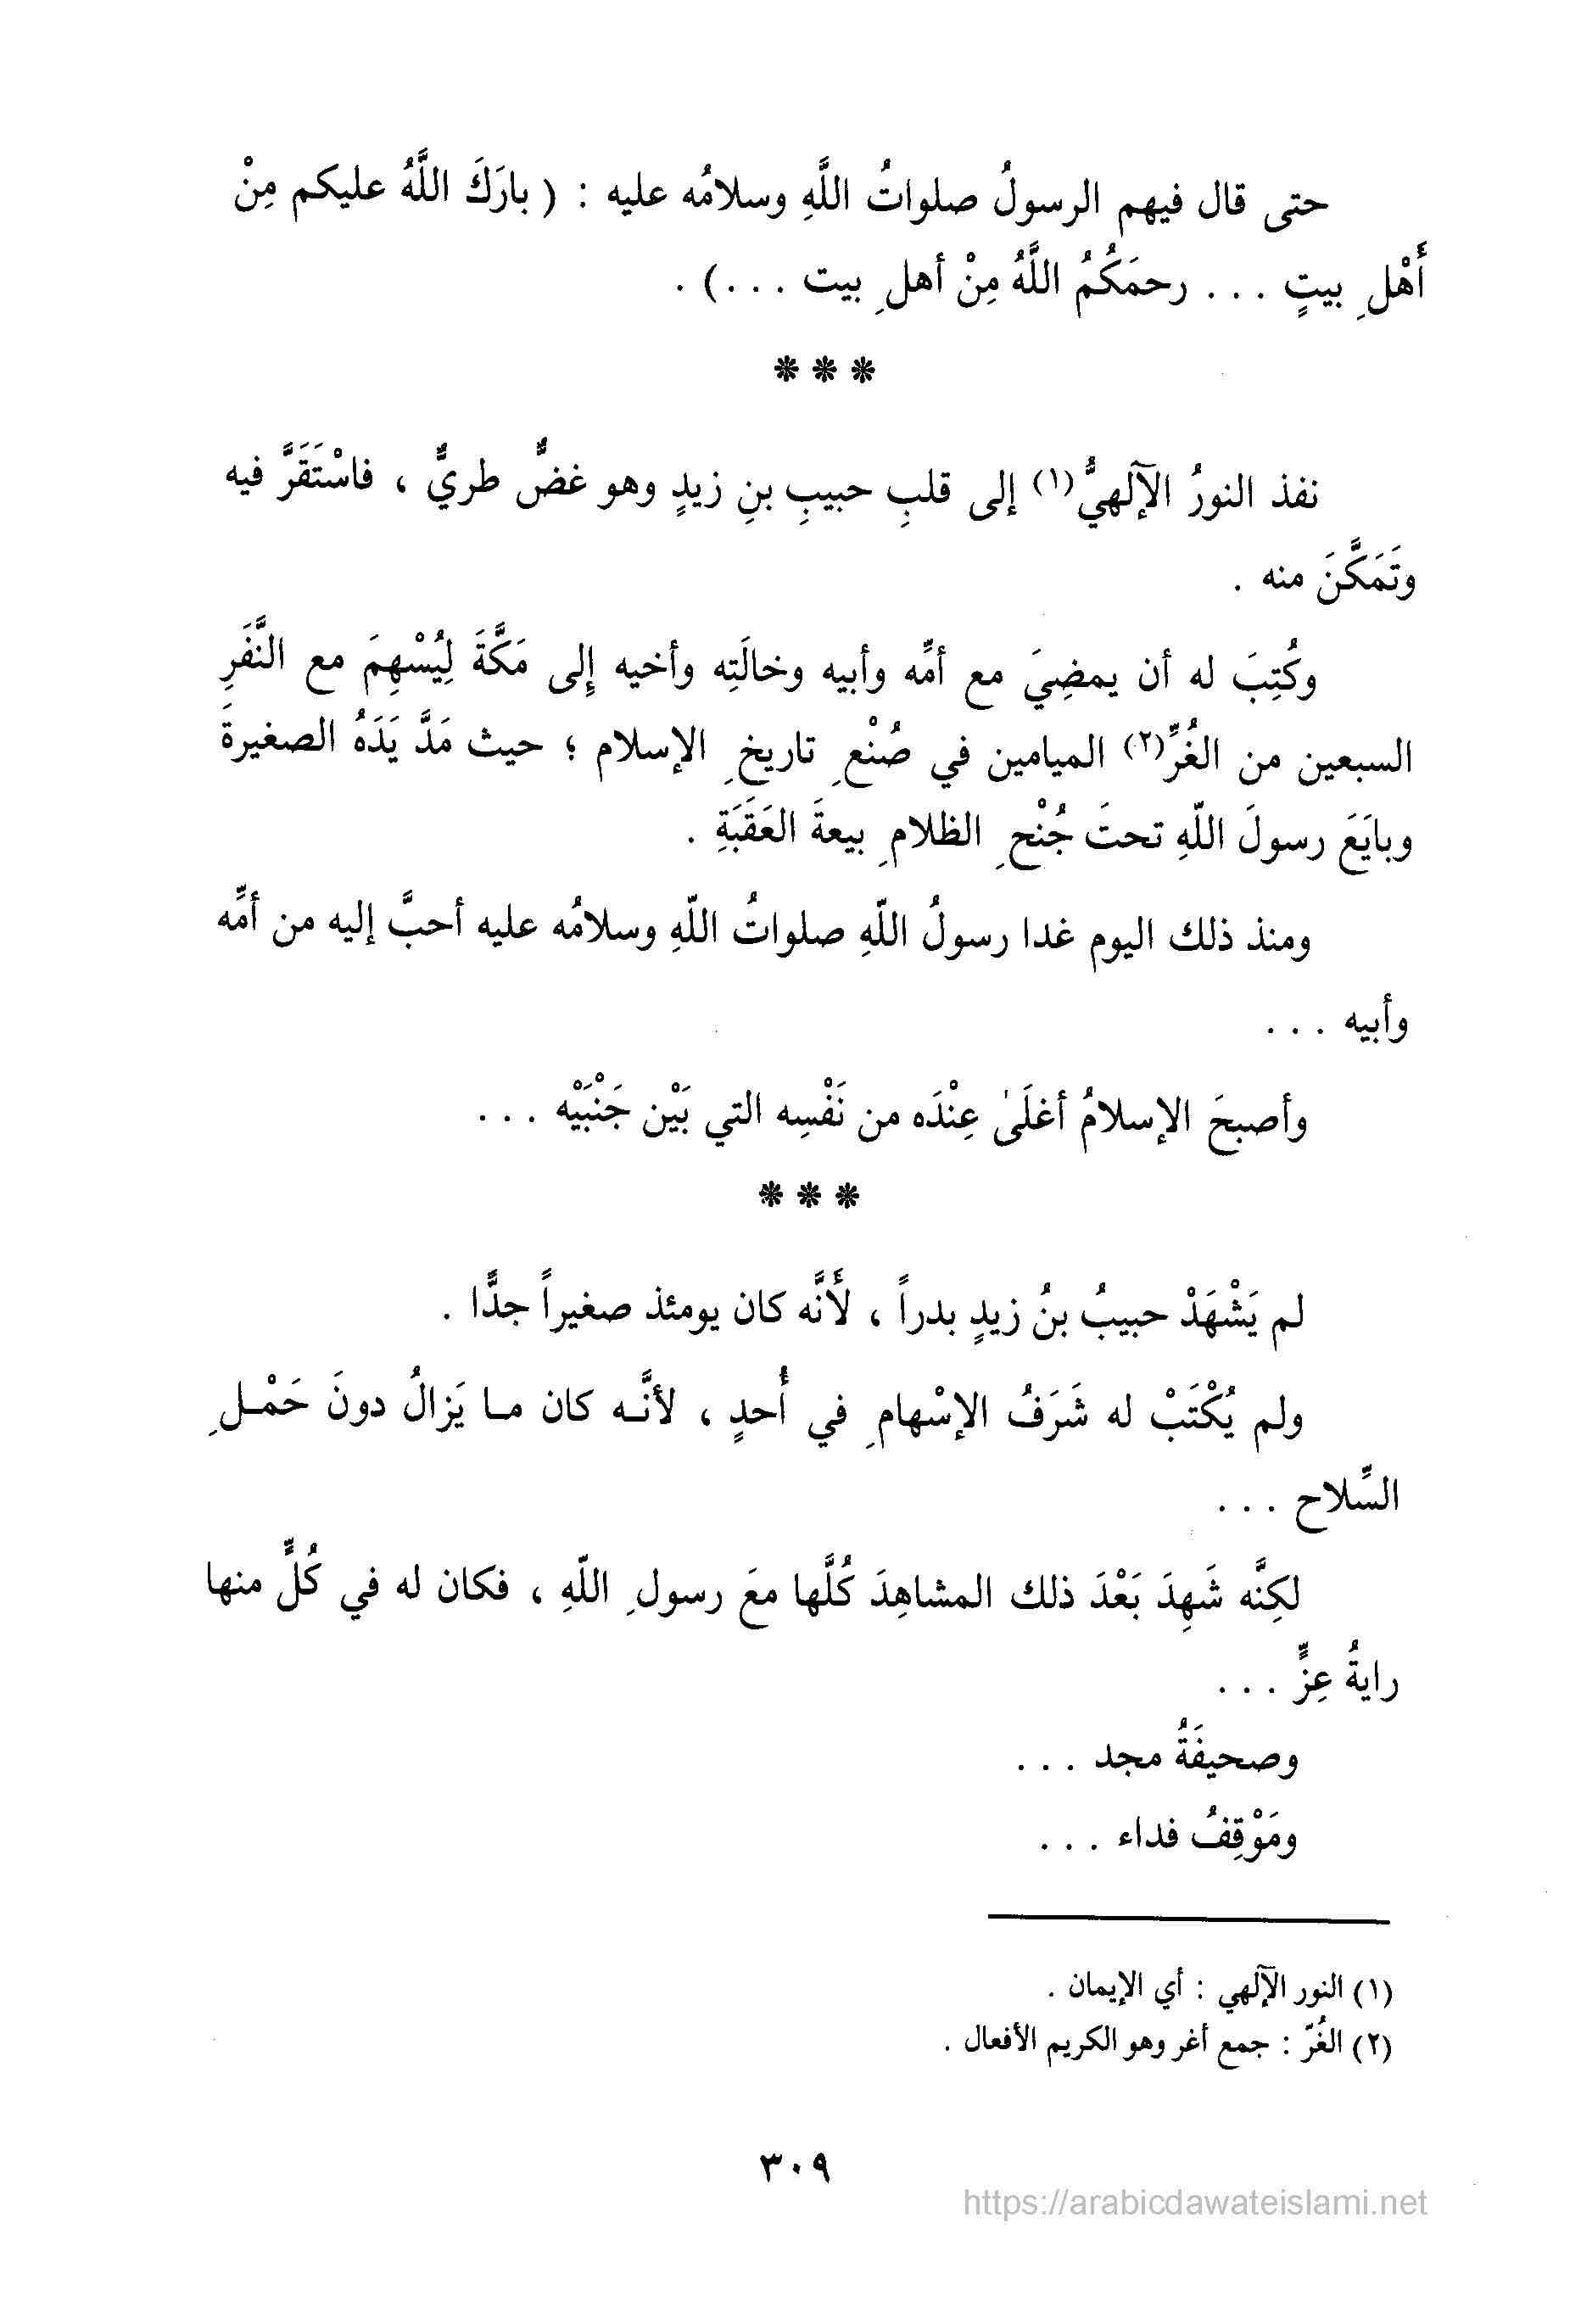 حتى قال فيهم الرسولُ صلواتُ اللَّهِ وسلامُه عليه : ( بارَكَ اللَّهُ عليكم مِنْ
أَهْلِ بيتٍ . . . رحمَكُمُ اللَّهُ مِنْ أهلِ بيتِ . . . ) .
* * *
نفذ النورُ الآلهيُّ(١) إلى قلبِ حبيبِ بنِ زيدٍ وهو غضٌّ طريٌّ ، فاسْتَقَرَّ فيه
وتَمَكَّنَ منه .
وكُتِبَ له أن يمضِيَ مع أمِّه وأبيه وخالَتِه وأخيه إِلى مَكَّةَ لِيُسْهِمَ مع النَّفَرِ
السبعين من الغُرِّ(٢) الميامين في صُنْعِ تاريخِ الإسلام ؛ حيث مَدَّ يَدَهُ الصغيرةَ
وبايَعَ رسولَ اللّهِ تحتَ جُنْحِ الظلامِ بيعةَ العَقَبَةِ .
ومنذ ذلك اليوم غدا رسولُ اللّهِ صلواتُ اللّهِ وسلامُه عليه أحبَّ إليه من أمِّه
وأبيه . . .
وأصبحَ الإسلامُ أغلَىٰ عِنْدَه من نَفْسِه التي بَيْن جَنْبَيْه . . .
* * *
لم يَشْهَدْ حبيبُ بنُ زيدٍ بدراً ، لأَنَّه كان يومئذ صغيراً جدًّا .
ولم يُكْتَبْ له شَرَفُ الإسْهامِ في أُحدٍ ، لأنَّـه كان مـا يَزالُ دونَ حَمْـلِ
السِّلاح . . .
لكِنَّه شَهِدَ بَعْدَ ذلك المشاهِدَ كُلَّها معَ رسولِ اللّهِ ، فكان له في كُلٍّ منها
رايةُ عِزٍّ . . .
وصحيفَةُ مجد . . .
ومَوْقِفُ فداء . . .
(١) النور الآلهي : أي الإيمان .
(٢) الغُرّ : جمع أغر وهو الكريم الأفعال .
٣٠٩
https://arabicdawateislami.net